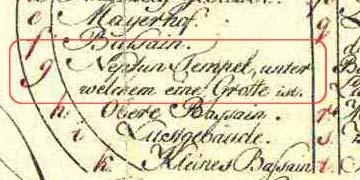 e Mayerhof. q
f Bassain.
g Neptun Tempel, unter
welchem eine Grotte ist.
h Obere Bassain. r
i Lustgebäude. s
k Kleines Bassain. t